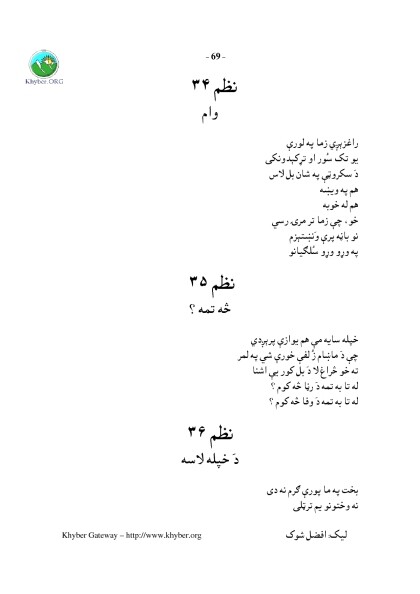 Khyber.ORG
- 69 -
نظم ۳۴
وام
راغزېږي زما په لوري
يو تک سُور او ترکېدونکی
دَ سکروټې په شان بل لاس
هم په ويښه
هم له خوبه
خو، چې زما تر مرۍ رسي
نو باڼه پرې وَنښتېږم
په وړو وړو سُلګيانو
نظم ۳۵
څه تمه ؟
خپله سايه مې هم يوازې پرېږدي
چې دَ ماښام زُلفې خورې شي په لمر
ته خو څراغ لا دَ بل کور يې اشنا
له تا به تمه دَ رڼا څه کوم ؟
له تا به تمه دَ وفا څه کوم ؟
نظم ۳۶
دَ خپله لاسه
بخت په ما پورې ګرم نه دی
نه وختونو يم ترټلی
ليک: افضل شوک
Khyber Gateway – http://www.khyber.org